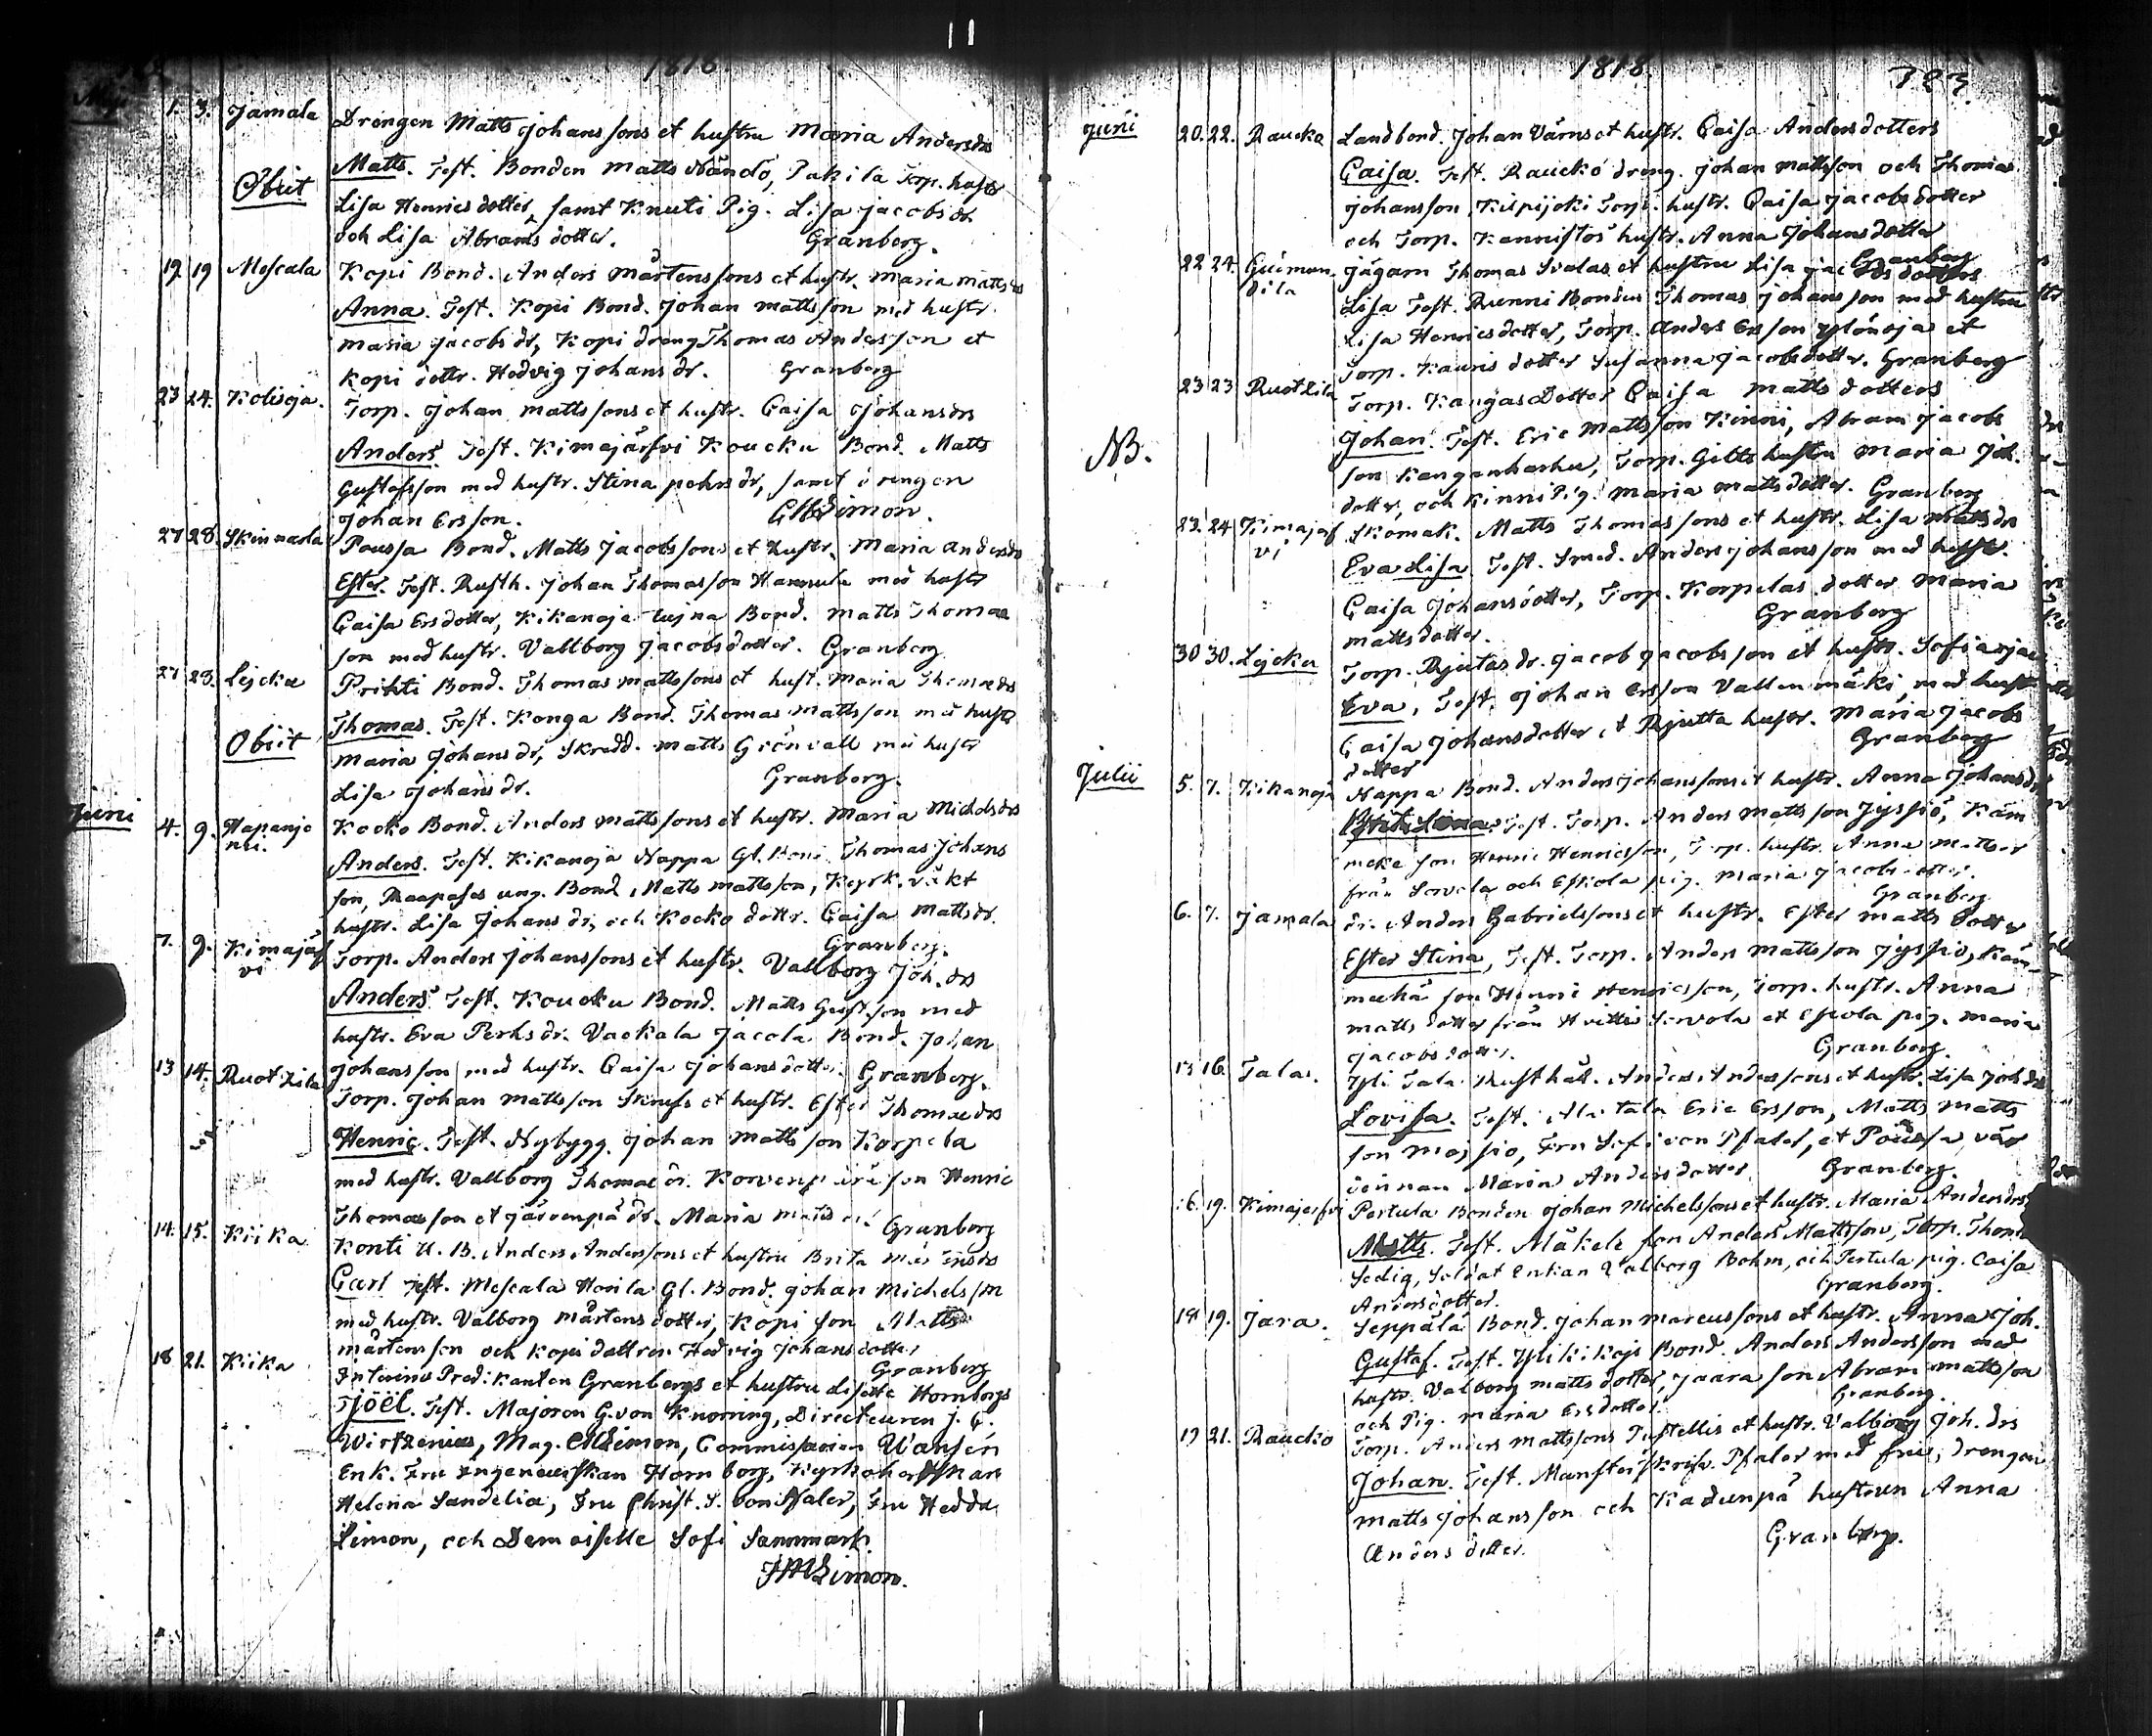 1818
Maji 1. 3. Jamala Drengen Matts Johanssons et hustru Maria Andersdrs
Matts. Test. Bonden Matts Nändö, Pakila Torp. hustr
Obiit Lisa Henricsdotter, samt Knuti Pig. Lisa Jacobsdr
och Lisa Abramsdotter. Granberg.
19 19 Mescala Kopi Bond. Anders Mårtenssons et hustr. Maria Mattsdrs
Anna. Test. Kopi Bond. Johan Mattsson med hustr.
Maria Jacobsdr, Kopi dreng Thomas Andersson et
Kopi dottr. Hedvig Johansdr. Granberg
23 24. Koliseja. Torp. Johan Mattssons et hustr. Caisa Johansdrs
Anders. Test. Kimajärfvi Koucku Bond. Matts
Gustafsson med hustr. Stina Pehrsdr, samt drengen
Johan Ersson. Limon.
27 28. Skinnarla Poussa Bond. Matts Jacobssons et hustr. Maria Andersdrs
Ester. Test. Rusth. Johan Thomasson Hannula med hustr
Caisa Ersdotter, Kikanoja Bond. Matts Thomae
son med hustr. Vallborg Jacobsdotter. Granberg
27 28. Lejcku Prihti Bond. Thomas Mattssons et hust. Maria Thomædrs
Thomas. Test. Konga Bond. Thomas Mattsson med hustr
Obiit Maria Johansdr, Skredd. Matts Grönvall med hustr
Lisa Johansdr. Granberg.
Juni 4. 9. Hapanje
mi. Kocko Bond. Anders Mattssons et hustr. Maria Michelsdrs
Anders. Test. Kikanoja Nappa Gl. Bond. Thomas Johans
son, Raapases ung. Bond. Matts Mattsson, Kyrk. väkt
hustr. Lisa Johansdr, och Kocko dottr. Caisa Mattsdr.
Granberg.
7. 9. Kimajäf
vi Torp. Anders Johanssons et hustr. Vallborg Joh. drs
Anders. Test. Koucku Bond. Matts Gustsson med
hustr. Eva Pehrsdr. Vackala Jacola Bond. Johan
Johansson med hustr. Caisa Johansdotter. Granberg.
13 14. Ruotzila Torp. Johan Mattsson Skrufs et hustr. Ester Thomædrs
Henric. Test. Nybygg. Johan Mattsson Korpela
med hustr. Vallborg Thomæ dr. Korvenpää son Henric
Thomasson et Järvenpä dr. Maria Matts dr Granberg
14. 15. Kiika Konti U. B. Anders Anderssons et hustru Brita Mårtensdrs
Carl Test. Mescala Honila Gl. Bond. Johan Michelsson
med hustr. Valborg Mårtensdotter, Kopi son Matts
Mårtensson och Kopi dottren Hedvig Johansdotter
Granberg
18 21. Kiika Interims Predikanten Granbergs et hustru Lisette Hornborgs
Joël. Test. Majoren G. von Knorring, Directeuren J. G.
Wirtzenius, Mag. Limon, Commissarien Wansén
Enk. Fru Ingeneurskan Hornborg, Kyrkoherdskan
Helena Sandelia, Fru Christ. S. von Pfaler, Fru Hedda
Limon, och Demoiselle Sofi Sammark.
Limon.
1818 723.
Juni 20. 22. Raucko Landbond. Johan Värns et hustr. Caisa Andersdotters
Caisa. Test. Rauckó dreng. Johan Mattsson och Thomas
Johansson, Kilpijoki Torp. hustr. Caisa Jacobsdotter
och Torp. Kannistos hustr. Anna Johansdotter
Granberg
22 24. Jägarn Thomas Svalas et hustru Lisa Jacobsdotters
Lisa Test. Runni Bonden Thomas Johansson med hustru
Lisa Henricsdotter, Torp. Anders Ersson Ylönoja et
Torp. Kauris dotter Susanna Jacobsdotter. Granberg
23 23 Ruotzila Torp. Kangas Dotter Caisa Mattsdotters
NB. Johan. Test. Eric Mattsson Kinni, Abram Jacobs
son Kanganharhu, Torp. Gills hustru Maria Joh.
dotter, och Kinni Pig. Maria Mattsdotter. Granberg
23. 24 Kimajäf
vi Skomak. Matts Thomassons et hustr. Lisa Mattsdrs
Eva Lisa Test. Smed. Anders Johansson med hustr.
Caisa Johansdotter, Torp. Korpelas dotter Maria
Mattsdotter. Granberg
30 30. Lejcku Torp. Rjutas dr. Jacob Jacobsson et hustr. Sofia Jac
Eva, Test. Johan Ersson Vallenmäki, med hustr
Caisa Johansdotter, et Rjutta hustr. Maria Jacobs
dotter Granberg
Julii 5. 7. Kikanoja Nappa Bond. Anders Johanssons et hustr. Anna Johansdr
Test. Torp. Anders Mattsson Jyssiö, Käm
mcke son Henric Henricsson, Torp. hustr. Anna Mattsdr
från Servola och Eskola pig. Maria Jacobsdotter.
Granberg
6. 7. Jamala dr. Anders Gabrielssons et hustr. Ester Mattsdotter
Ester Stina, Test. Torp. Anders Mattsson Jyssiö, Käm-
meckä son Henric Henricsson, Torp. hustr. Anna
Mattsdotter från Servola et Eskola pig. Maria
Jacobsdotter. Granberg.
13 16. Talas. Yli Tala Rusthåll. Anders Anderssons et hustr. Lisa Joh drs
Lovisa. Test. Ala Tala Eric Ersson, Matts Matts
son Majsio, Fru Sofi von Pfaler, et Poussa vär
dinnan Maria Andersdotter Granberg.
16. 19. Kimajerfvi Pertula Bonden Johan Michelssons et hustr. Maria Andersdrs
Matts. Test. Mäkele son Anders Mattsson, Torp. Thomas
Sedig, Soldat Enkan Valborg Bohm, och Pertula pig. Caisa
Andersdotter. Granberg.
18 19. Jara. Seppälä Bond. Johan Marcussons et hustr. Anna Joh.
Gustaf. Test. Yli Kikoji Bond. Anders Andersson med
hustr. Valborg Mattsdotter, Jaara son Abram Mattsson
och Pig. Maria Ersdotter. Granberg.
19 21. Raucko Torp. Anders Mattssons Pustellis et hustr. Valborg Joh. drs
Johan. Test. Munsterskrifv. Pfaler med fru, Drengen
Matts Johansson och Kadunpä hustrun Anna
Andersdotter. Granberg.